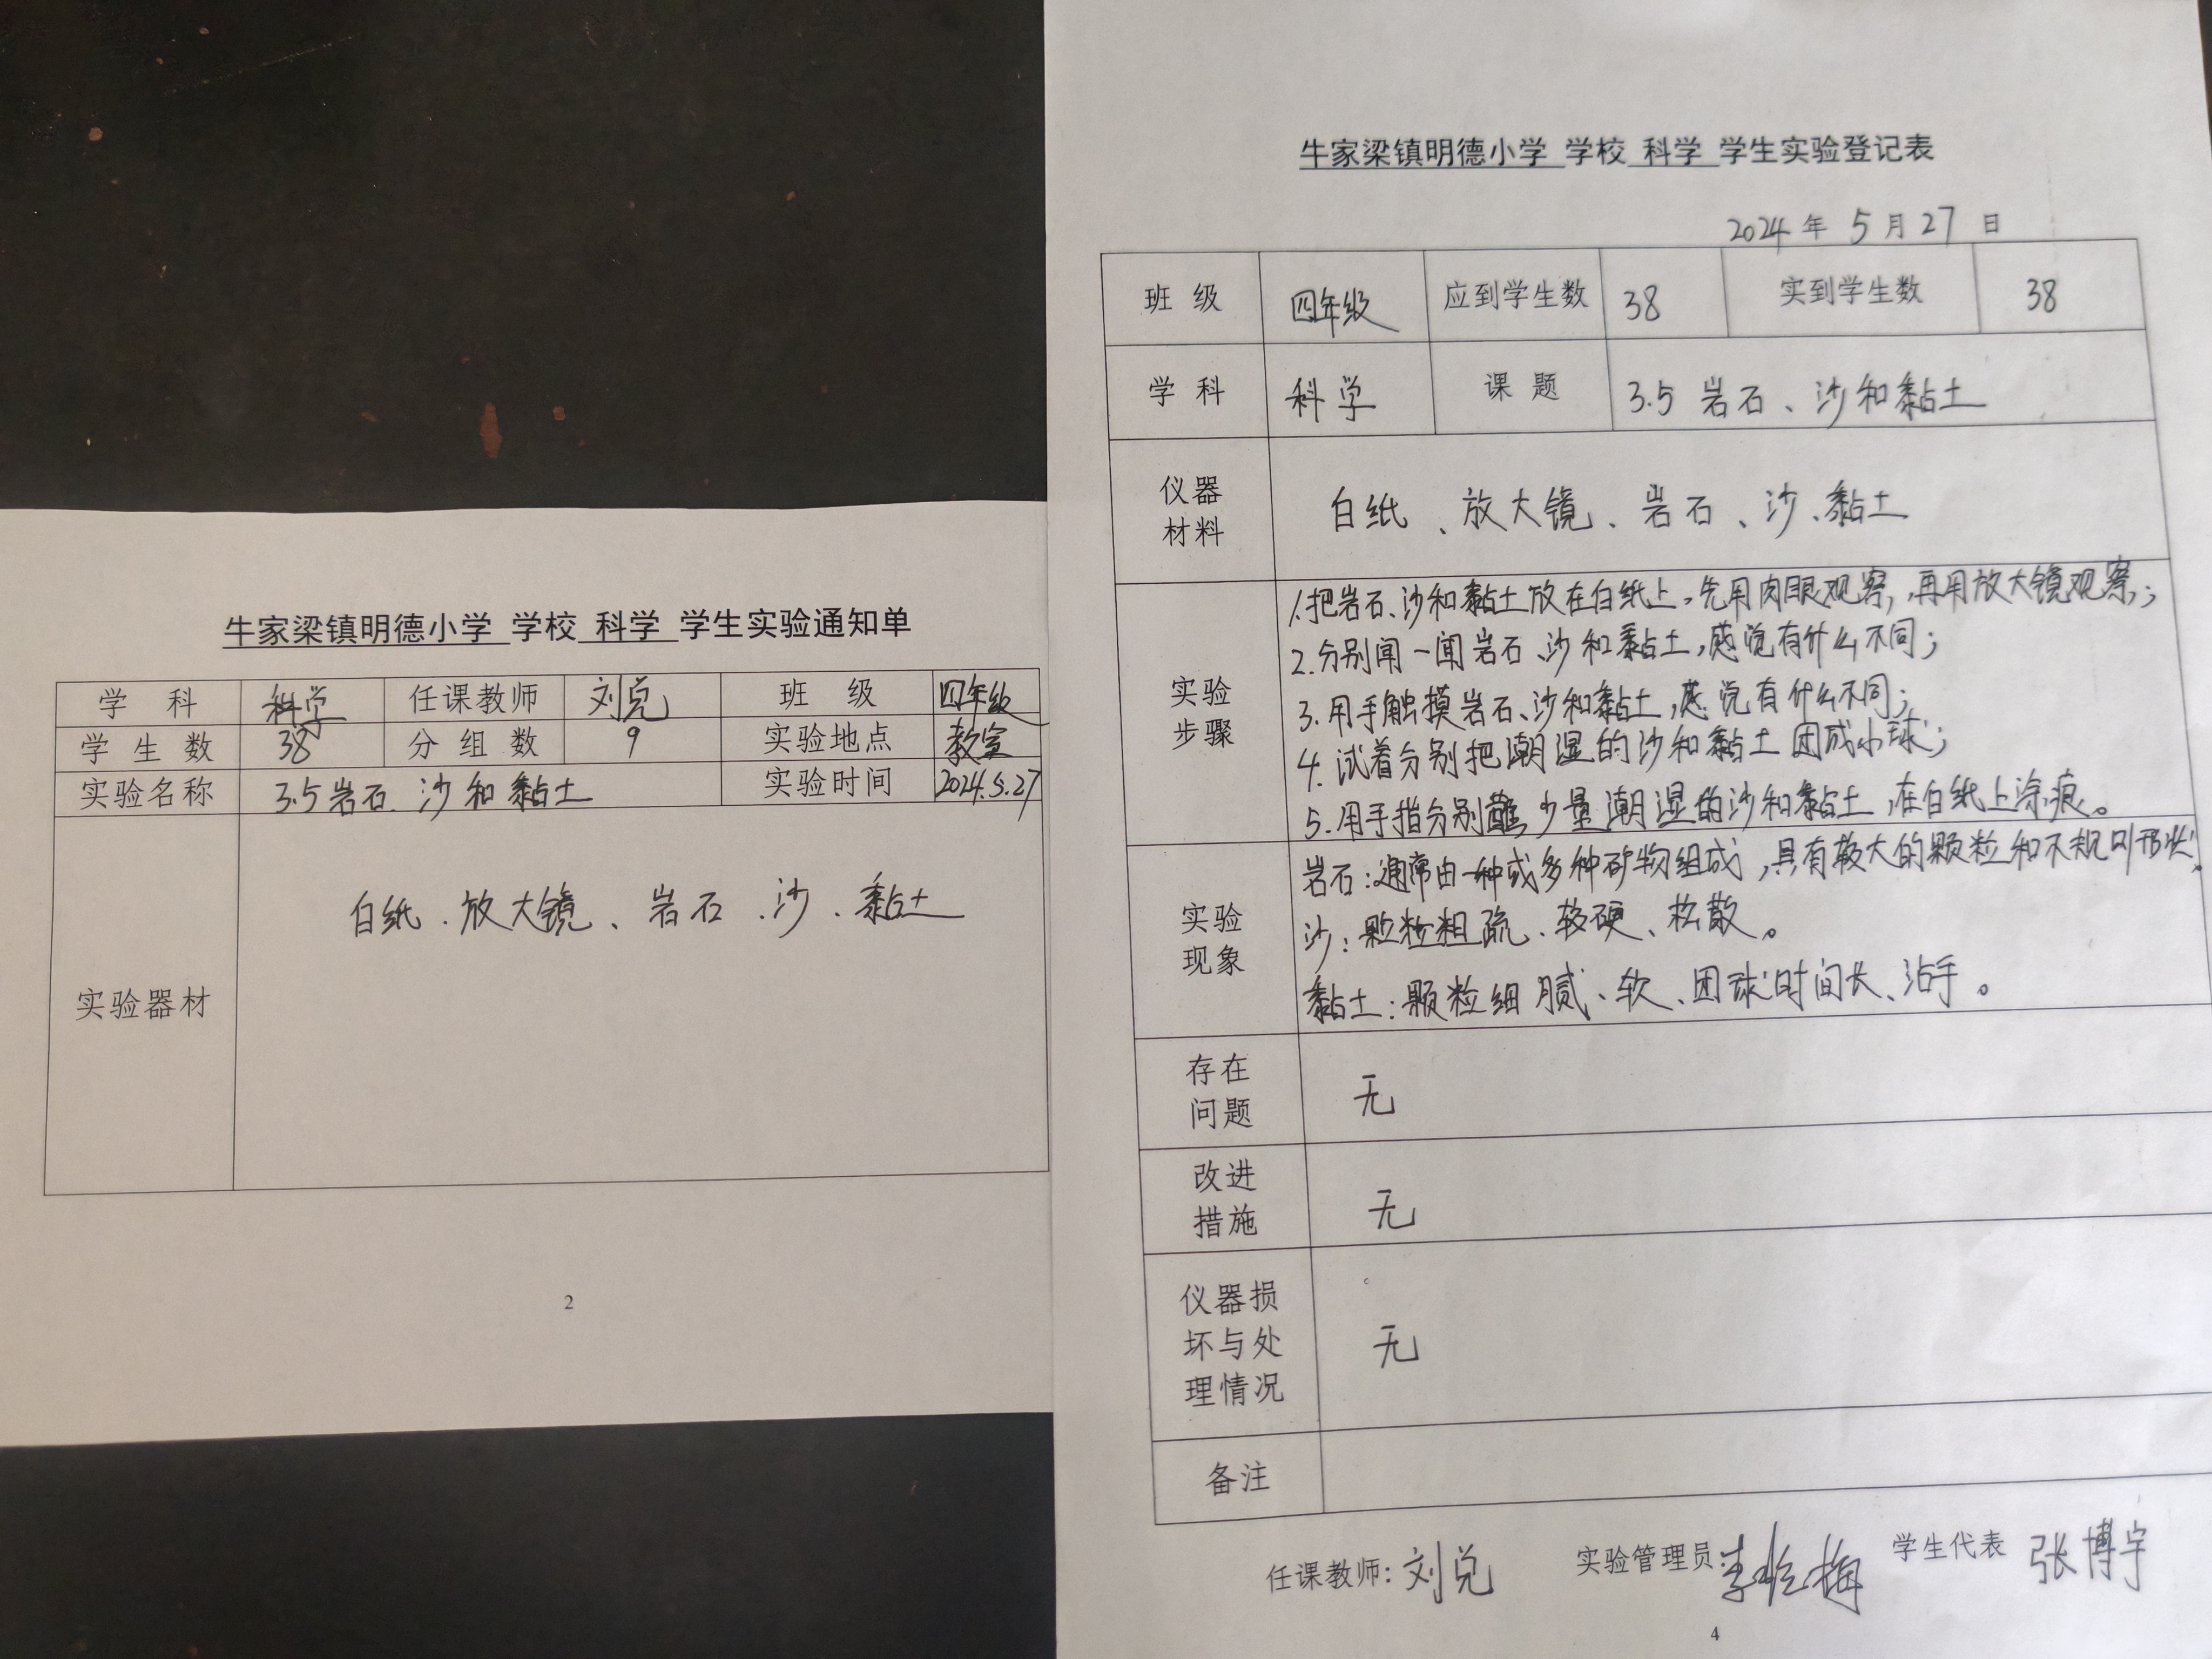 牛家梁镇明德小学 学校 科学 学生实验通知单
学 科 科学 任课教师 刘兑 班 级 四年级
学 生 数 38 分 组 数 9 实验地点 教室
实验名称 3.5岩石、沙和黏土 实验时间 2024.5.27
实验器材 白纸、放大镜、岩石、沙、黏土
2
牛家梁镇明德小学 学校 科学 学生实验登记表
2024 年 5 月 27 日
班 级 四年级 应到学生数 38 实到学生数 38
学 科 科学 课 题 3.5 岩石、沙和黏土
仪器
材料
白纸、放大镜、岩石、沙、黏土
实验
步骤
1.把岩石、沙和黏土放在白纸上,先用肉眼观察,再用放大镜观察;
2.分别闻一闻岩石、沙和黏土,感觉有什么不同;
3.用手触摸岩石、沙和黏土,感觉有什么不同;
4.试着分别把潮湿的沙和黏土团成小球;
5.用手指分别蘸少量潮湿的沙和黏土,在白纸上涂痕。
实验
现象
岩石:通常由一种或多种矿物组成,具有较大的颗粒和不规则形状。
沙:颗粒粗疏、较硬、松散。
黏土:颗粒细腻、软、团球时间长、沾手。
存在
问题
无
改进
措施
无
仪器损
坏与处
理情况
无
备注
任课教师:刘兑 实验管理员: 学生代表 张博宇
4